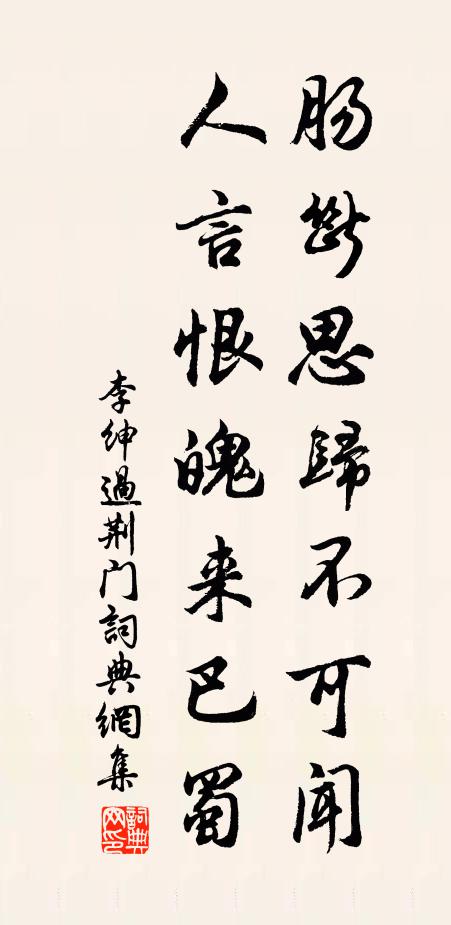 肠断思歸不可闻
人言恨魄来巴蜀
李绅過荆门詞典網集
詞典網印